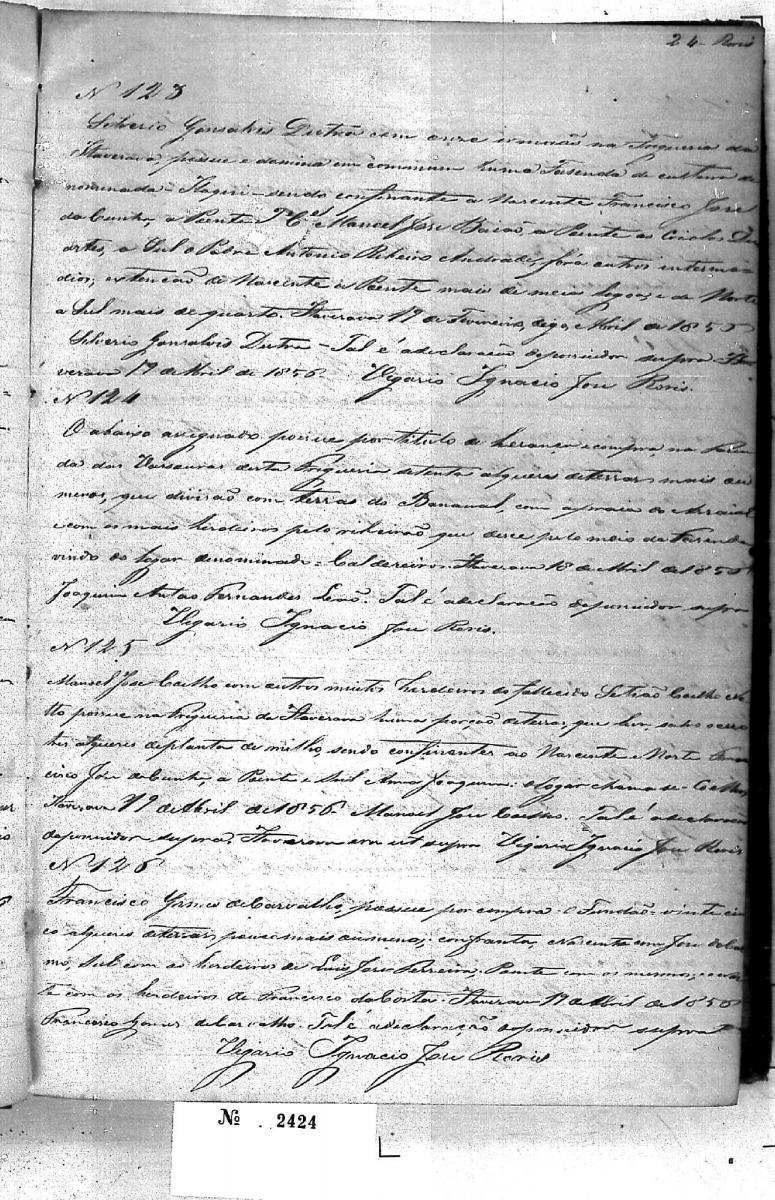 24 - Roris
N 123
Silverio Gonsalves Dutra com onze irmaons na Freguesia da
Itaverava possue e domina em commum huma Fasenda de cultura de
nominada - Itaquri - sendo confinante a Nascente Francisco Jose
da Cunha, a Poente Te Cel Manoel Jose Baiaõ, a Poente as
a Sul o Padre Antonio Ribeiro Andrade, fora outros interme
dios; extençaõ de Nascente a Poente mais de meia legoa, e de Norte
a Sul mais de quarto. Itaverava 19 de Fevereiro, digo, Abril de 1856
Silverio Gonsalves Dutra - Tal é a declaraçaõ do possuidor supra Ita
verava 19 de Abril de 1856 Vigario Ignacio Jose Roris.
N 124
O abaixo assignado possue por titulo de herança e compra na Fasen
da das Vassouras desta Freguesia setenta alqueres de terras mais ou
menos, que divisaõ com terras do Bananal, com a praia do Arraial
e com os mais herdeiros pelo ribeiraõ, que desce pelo meio da Fasenda
vindo do logar denominado - Caldeiroes. Itaverava 18 de Abril de 1856
Joaquim Antaõ Fernandes Leaõ. Tal é a declaraçaõ do possuidor supra
Vigario Ignacio Jose Roris.
N 125
Manoel Jose Coelho com outros muitos herdeiros do fallecido Coelho Ne
tto possue na Freguesia da Itaverava huma porçaõ de terras, que
tres alqueres de planta de milho, sendo confinantes ao Nascente e Norte Fran
cisco Jose da Cunha, a Poente e Sul Anna Joaquina: o logar chama-se - Coelhos
Itaverava 19 de Abril de 1856 Manoel Jose Coelho. Tal é a declaraçaõ
do possuidor supra. Itaverava era ut supra Vigario Ignacio Jose Roris
N 126
Francisco Gomes de Carvalho, possue por compra o Fundaõ - vinte cin
co alqueres de terras, pouco mais ou menos; confronta, Nascente com Jose do Car
mo, Sul com os herdeiros de Luis Jose Ferreira, Poente com os mesmos; e nor
te com os herdeiros de Francisco da Costa. Itaverava 19 de Abril de 1856
Francisco Gomes de Carvalho. Tal é a declaraçaõ do possuidor supra
Vigario Ignacio Jose Roris
Nº 2424